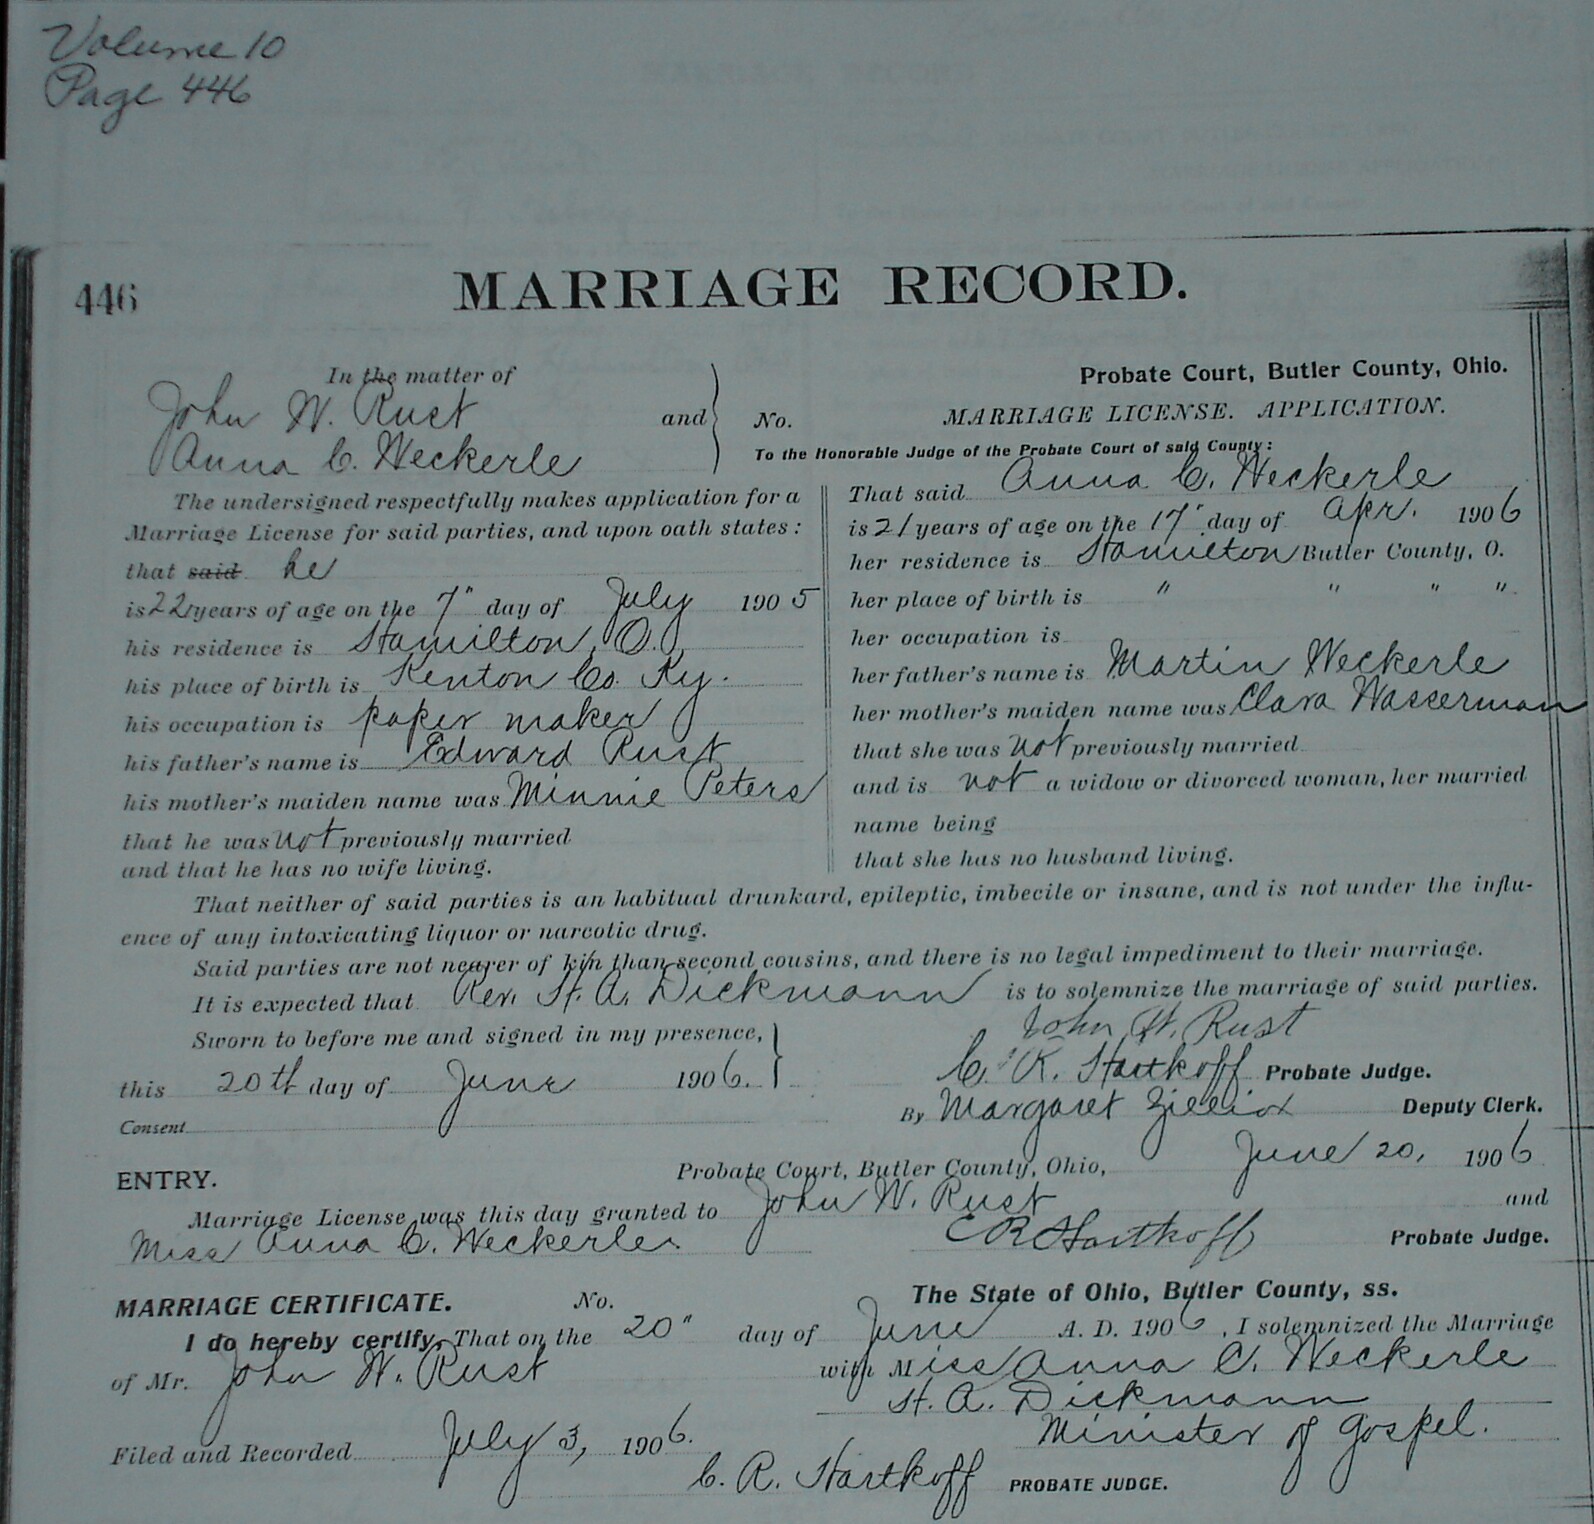 Volume 10
Page 446
446 MARRIAGE RECORD.
In the matter of
John W. Rust and
Anna C. Weckerle
No.
Probate Court, Butler County, Ohio.
MARRIAGE LICENSE. APPLICATION.
To the Honorable Judge of the Probate Court of said County:
The undersigned respectfully makes application for a
Marriage License for said parties, and upon oath states:
that said he
is 22 years of age on the 7" day of July 1905
his residence is Hamilton, O.
his place of birth is Kenton Co. Ky.
his occupation is paper maker
his father's name is Edward Rust
his mother's maiden name was Minnie Peters
that he was not previously married
and that he has no wife living.
That said Anna C. Weckerle
is 21 years of age on the 17" day of Apr. 1906
her residence is Hamilton Butler County, O.
her place of birth is " " " "
her occupation is
her father's name is Martin Weckerle
her mother's maiden name was Clara Wasserman
that she was not previously married
and is not a widow or divorced woman, her married
name being
that she has no husband living.
That neither of said parties is an habitual drunkard, epileptic, imbecile or insane, and is not under the influ-
ence of any intoxicating liquor or narcotic drug.
Said parties are not nearer of kin than second cousins, and there is no legal impediment to their marriage.
It is expected that Rev. H. A. Dickmann is to solemnize the marriage of said parties.
Sworn to before me and signed in my presence,
this 20th day of June 1906.
Consent
John W. Rust
C. R. Hartkoff Probate Judge.
By Margaret Zilliox Deputy Clerk.
ENTRY. Probate Court, Butler County, Ohio, June 20, 1906
Marriage License was this day granted to John W. Rust and
Miss Anna C. Weckerle. C R Hartkoff Probate Judge.
MARRIAGE CERTIFICATE. No. The State of Ohio, Butler County, ss.
I do hereby certify, That on the 20" day of June A. D. 1906, I solemnized the Marriage
of Mr. John W. Rust with Miss Anna C. Weckerle
H. A. Dickmann
Minister of Gospel.
Filed and Recorded July 3, 1906.
C. R. Hartkoff PROBATE JUDGE.